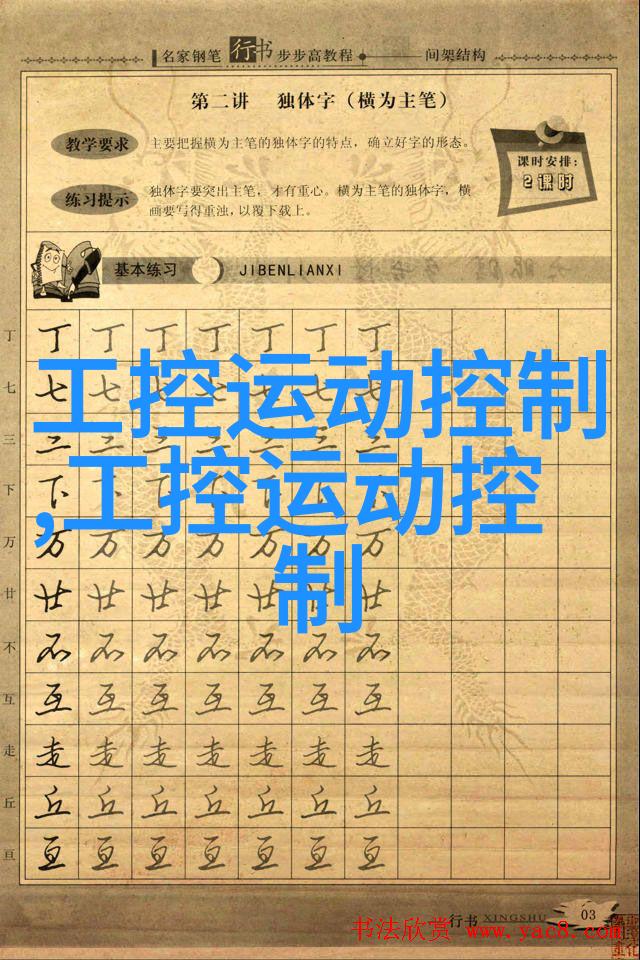 名家钢笔行书步步高教程 间架结构
第二讲 独体字（横为主笔）
教学要求
主要把握横为主笔的独体字的特点，确立好字的形态。
练习提示
独体字要突出主笔，才有重心。横为主笔的独体字，横
画要写得重浊，以覆下载上。
课时安排：
2课时
基本练习 JIBENLIANXI
丁 丁 丁 丁 丁 丁 丁 丁
七 七 七 七 七 七 七 七
三 三 三 三 三 三 三 三
下 下 下 下 下 下 下 下
万 万 万 万 万 万 万 万
廿 廿 廿 廿 廿 廿 廿 廿
不 不 不 不 不 不 不 不
互 互 互 互 互 互 互 互
走 走 走 走 走 走 走 走
丘 丘 丘 丘 丘 丘 丘 丘
亘 亘 亘 亘 亘 亘 亘 亘
工控运动控制
,工控运动控
制
行书 XINGSHU 03
书法欣赏 www.yac8.com